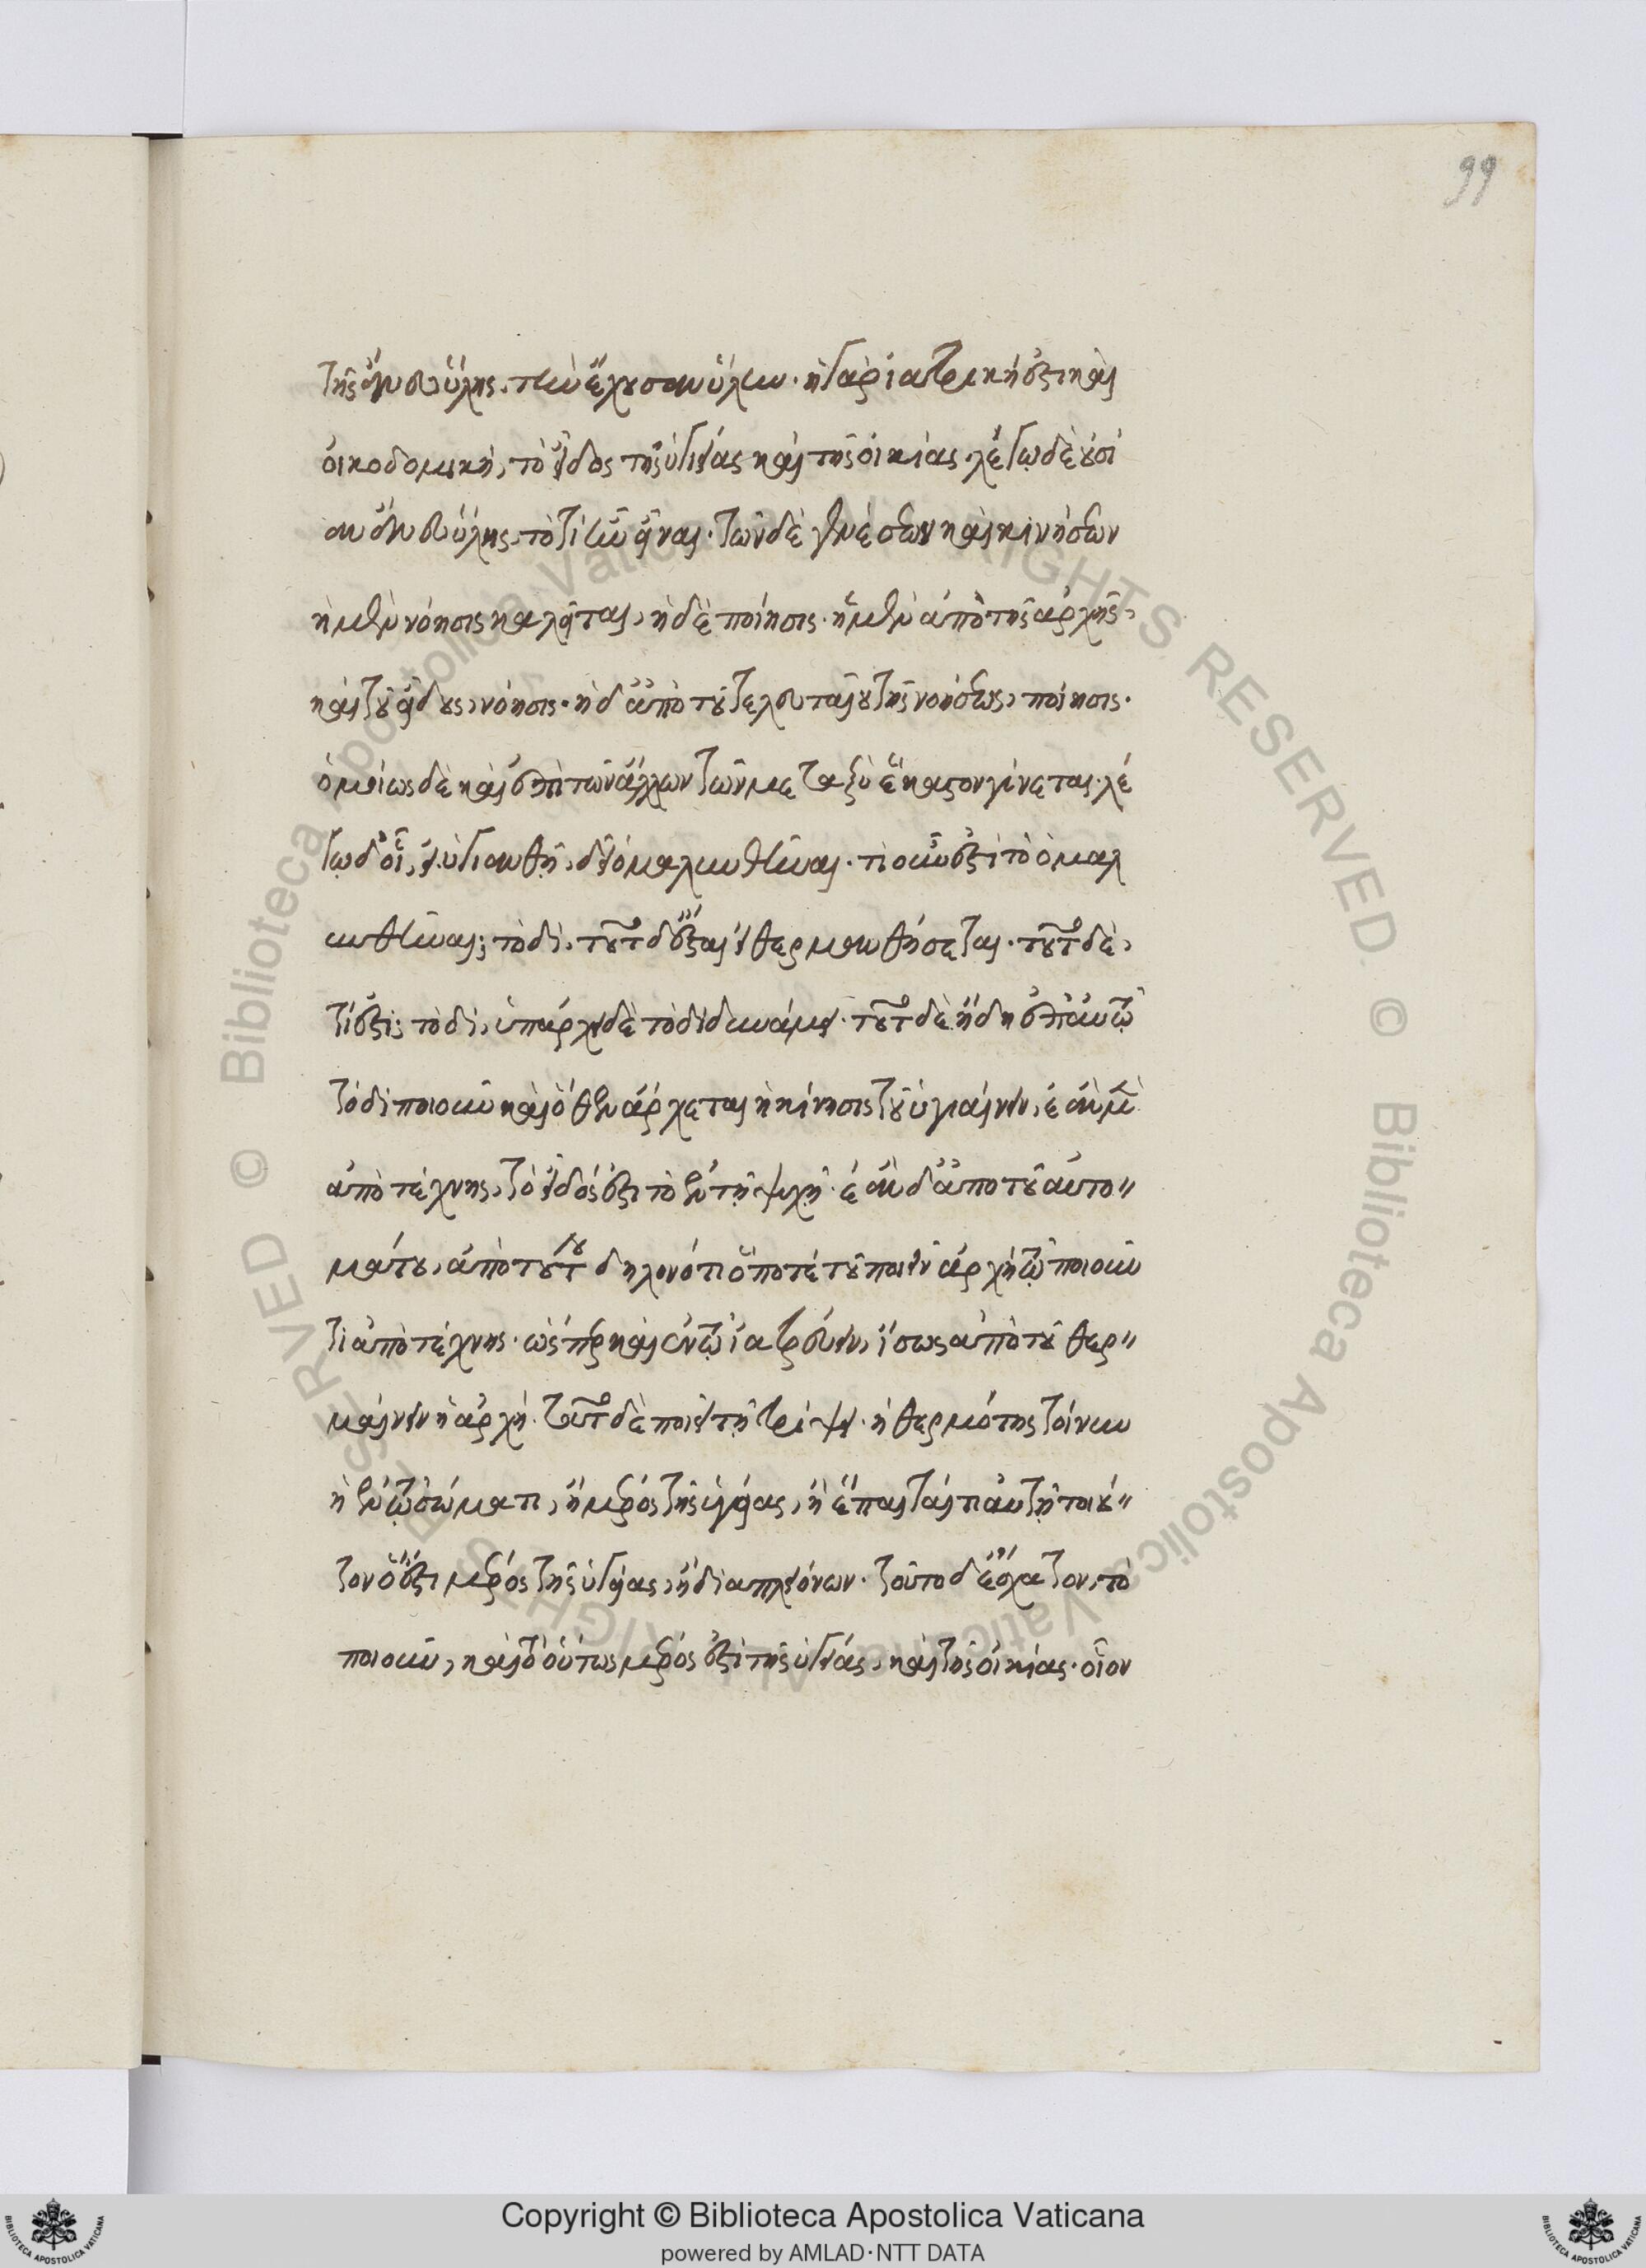 τῆς ἄνευ ὕλης, τὴν ἔχουσαν ὕλην· ἡ γὰρ ἰατρικὴ ἐστὶ καὶ
οἰκοδομικὴ, τὸ εἶδος τῆς ὑγιείας καὶ τῆς οἰκίας· λέγω δὲ οὐσί
αν ἄνευ ὕλης, τὸ τί ἦν εἶναι· τῶν δὲ γενέσεων καὶ κινήσεων
ἡ μὲν νόησις καλεῖται, ἡ δὲ ποίησις· ἡ μὲν ἀπὸ τῆς ἀρχῆς,
καὶ τοῦ εἴδους, νόησις· ἡ δ' ἀπὸ τοῦ τελευταίου τῆς νοήσεως, ποίησις·
ὁμοίως δὲ καὶ ἐπὶ τῶν ἄλλων τῶν μεταξὺ ἕκαστον γίνεται· λέ
γω δ' οἷον, εἰ ὑγιανθῇ, δεῖ ὁμαλυνθῆναι· τί οὖν ἐστὶ τὸ ὁμαλ
υνθῆναι; τοδί· τοῦτο δ' ἔσται εἰ θερμανθήσεται· τοῦτο δὲ,
τί ἐστι; τοδί, ὑπάρχει δὲ τοδὶ δυνάμει· τοῦτο δὲ ἤδη ἐπ' αὐτῷ
τὸ δὴ ποιοῦν καὶ ὅθεν ἄρχεται ἡ κίνησις τοῦ ὑγιαίνειν, ἐὰν μὲν
ἀπὸ τέχνης, τὸ εἶδός ἐστι τὸ ἐν τῇ ψυχῇ· ἐὰν δ' ἀπο τοῦ αὐτο〃
μάτου, ἀπὸ τούτου δηλονότι ὅ ποτε τοῦ ποιεῖν ἀρχὴ τῷ ποιοῦν
τι ἀπὸ τέχνης· ὥσπερ καὶ ἐν τῷ ἰατρεύειν, ἴσως ἀπὸ τοῦ θερ〃
μαίνειν ἡ ἀρχή· τοῦτο δὲ ποιεῖ τῇ τρίψει· ἡ θερμότης τοίνυν
ἡ ἐν τῷ σώματι, ἢ μέρος τῆς ὑγείας, ἢ ἕπεταί τι αὐτῇ τοιοῦ〃
τον ὅ ἐστι μέρος τῆς ὑγείας, ἢ διὰ πλειόνων· τοῦτο δ' ἔσχατον, τὸ
ποιοῦν, καὶ τὸ οὕτως μέρος ἐστὶ τῆς ὑγιείας, καὶ τῆς οἰκίας· οἷον
99
Copyright © Biblioteca Apostolica Vaticana
powered by AMLAD·NTT DATA